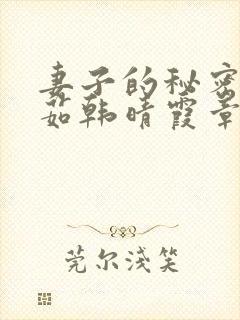 妻子的秘密
茹韩晴霞章
莞尔浅笑